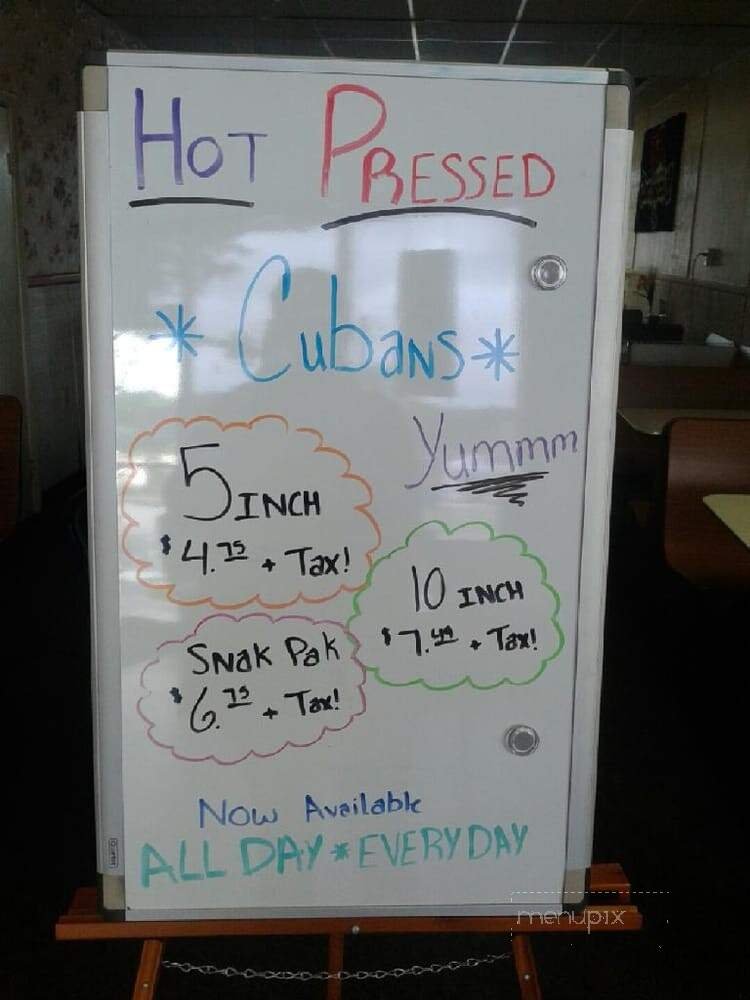 HOT PRESSED
* Cubans *
Yummm
5 INCH
$4.75 + Tax!
10 INCH
$7.49 + Tax!
SNAK PAK
$6.75 + Tax!
Now Available
ALL DAY * EVERY DAY
menupix